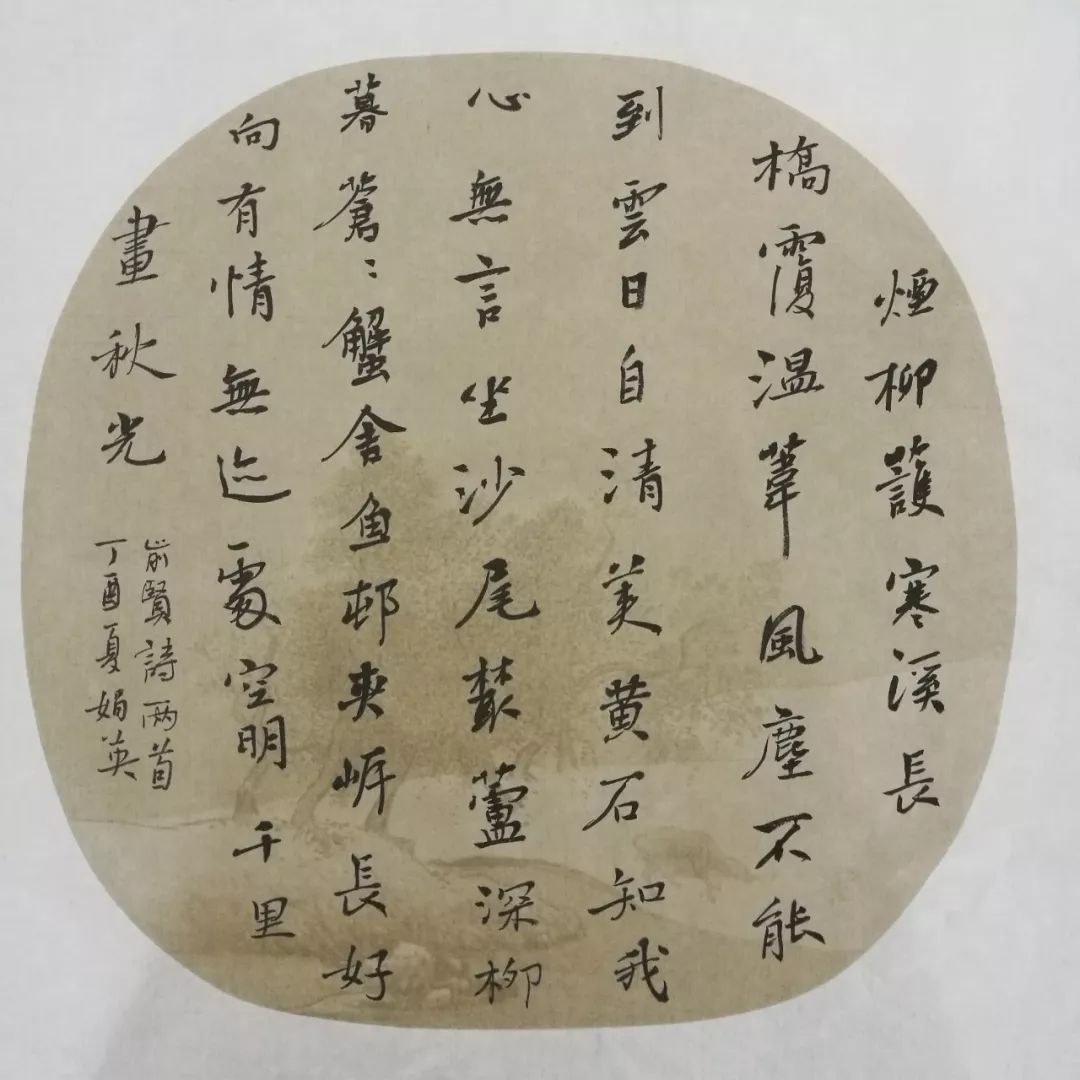 煙柳護寒溪長
橋覆溫葦風塵不能
到雲日自清美黄石知我
心無言坐沙尾叢蘆深柳
暮蒼〻蟹舍魚邨夾岸長好
向有情無迹處空明千里
畫秋光
前賢詩兩首
丁酉夏娟英